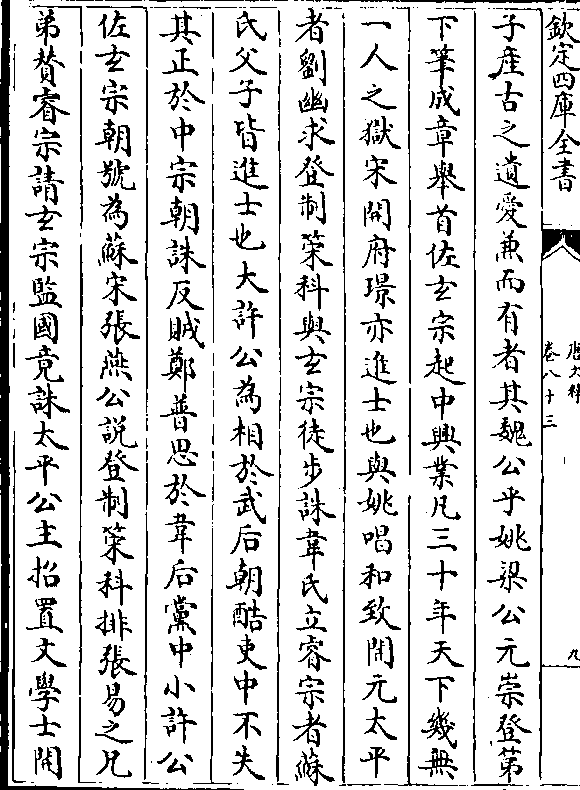 欽定四庫全書
唐文粹
卷八十三
九
子産古之遺愛兼而有者其魏公乎姚梁公元崇登第
下筆成章舉首佐玄宗起中興業凡三十年天下幾無
一人之獄宋開府璟亦進士也與姚唱和致開元太平
者劉幽求登制策科與玄宗徒步誅韋氏立睿宗者蘇
氏父子皆進士也大許公為相於武后朝酷吏中不失
其正於中宗朝誅反賊鄭普思於韋后黨中小許公
佐玄宗朝號為蘇宋張燕公説登制策科排張易之兄
弟賛睿宗請玄宗監國竟誅太平公主招置文學士開